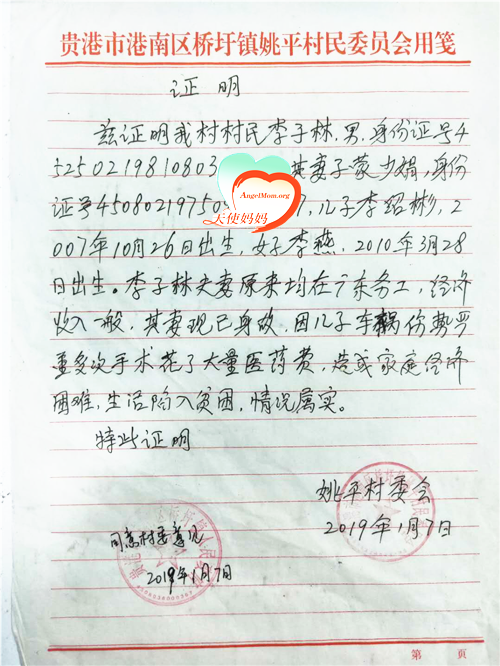 贵港市港南区桥圩镇姚平村民委员会用笺
证明
兹证明我村村民李子林,男,身份证号4
5250219810803 其妻子蒙少娟,身份
证号45080219750 7,儿子李绍彬,2
007年10月26日出生,女子李燕,2010年3月28
日出生。李子林夫妻原来均在广东务工,经济
收入一般,其妻现已身故,因儿子车祸伤势严
重多次手术花了大量医药费,造成家庭经济
困难,生活陷入贫困,情况属实。
特此证明
AngelMom.org
天使妈妈
姚平村委会
2019年1月7日
同意村委意见
2019年1月7日
第 页